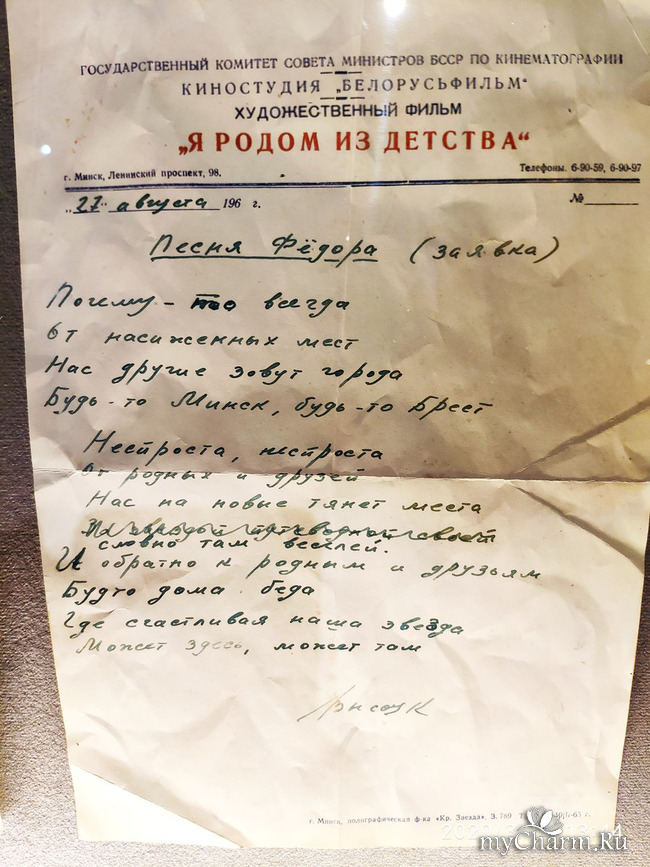 ГОСУДАРСТВЕННЫЙ КОМИТЕТ СОВЕТА МИНИСТРОВ БССР ПО КИНЕМАТОГРАФИИ
КИНОСТУДИЯ „БЕЛОРУСЬФИЛЬМ“
ХУДОЖЕСТВЕННЫЙ ФИЛЬМ
„Я РОДОМ ИЗ ДЕТСТВА“
г. Минск, Ленинский проспект, 98. Телефоны. 6-90-59, 6-90-97
„27“ августа 196 г. №
Песня Фёдора (заявка)
Почему-то всегда
От насиженных мест
Нас другие зовут города
Будь-то Минск, будь-то Брест
Неспроста, неспроста
От родных и друзей
Нас на новые тянет места
словно там веселей.
И обратно к родным и друзьям
Будто дома беда
Где счастливая наша звезда
Может здесь, может там
г. Минск, полиграфическая ф-ка «Кр. Звезда». З. 789
myCharm.Ru